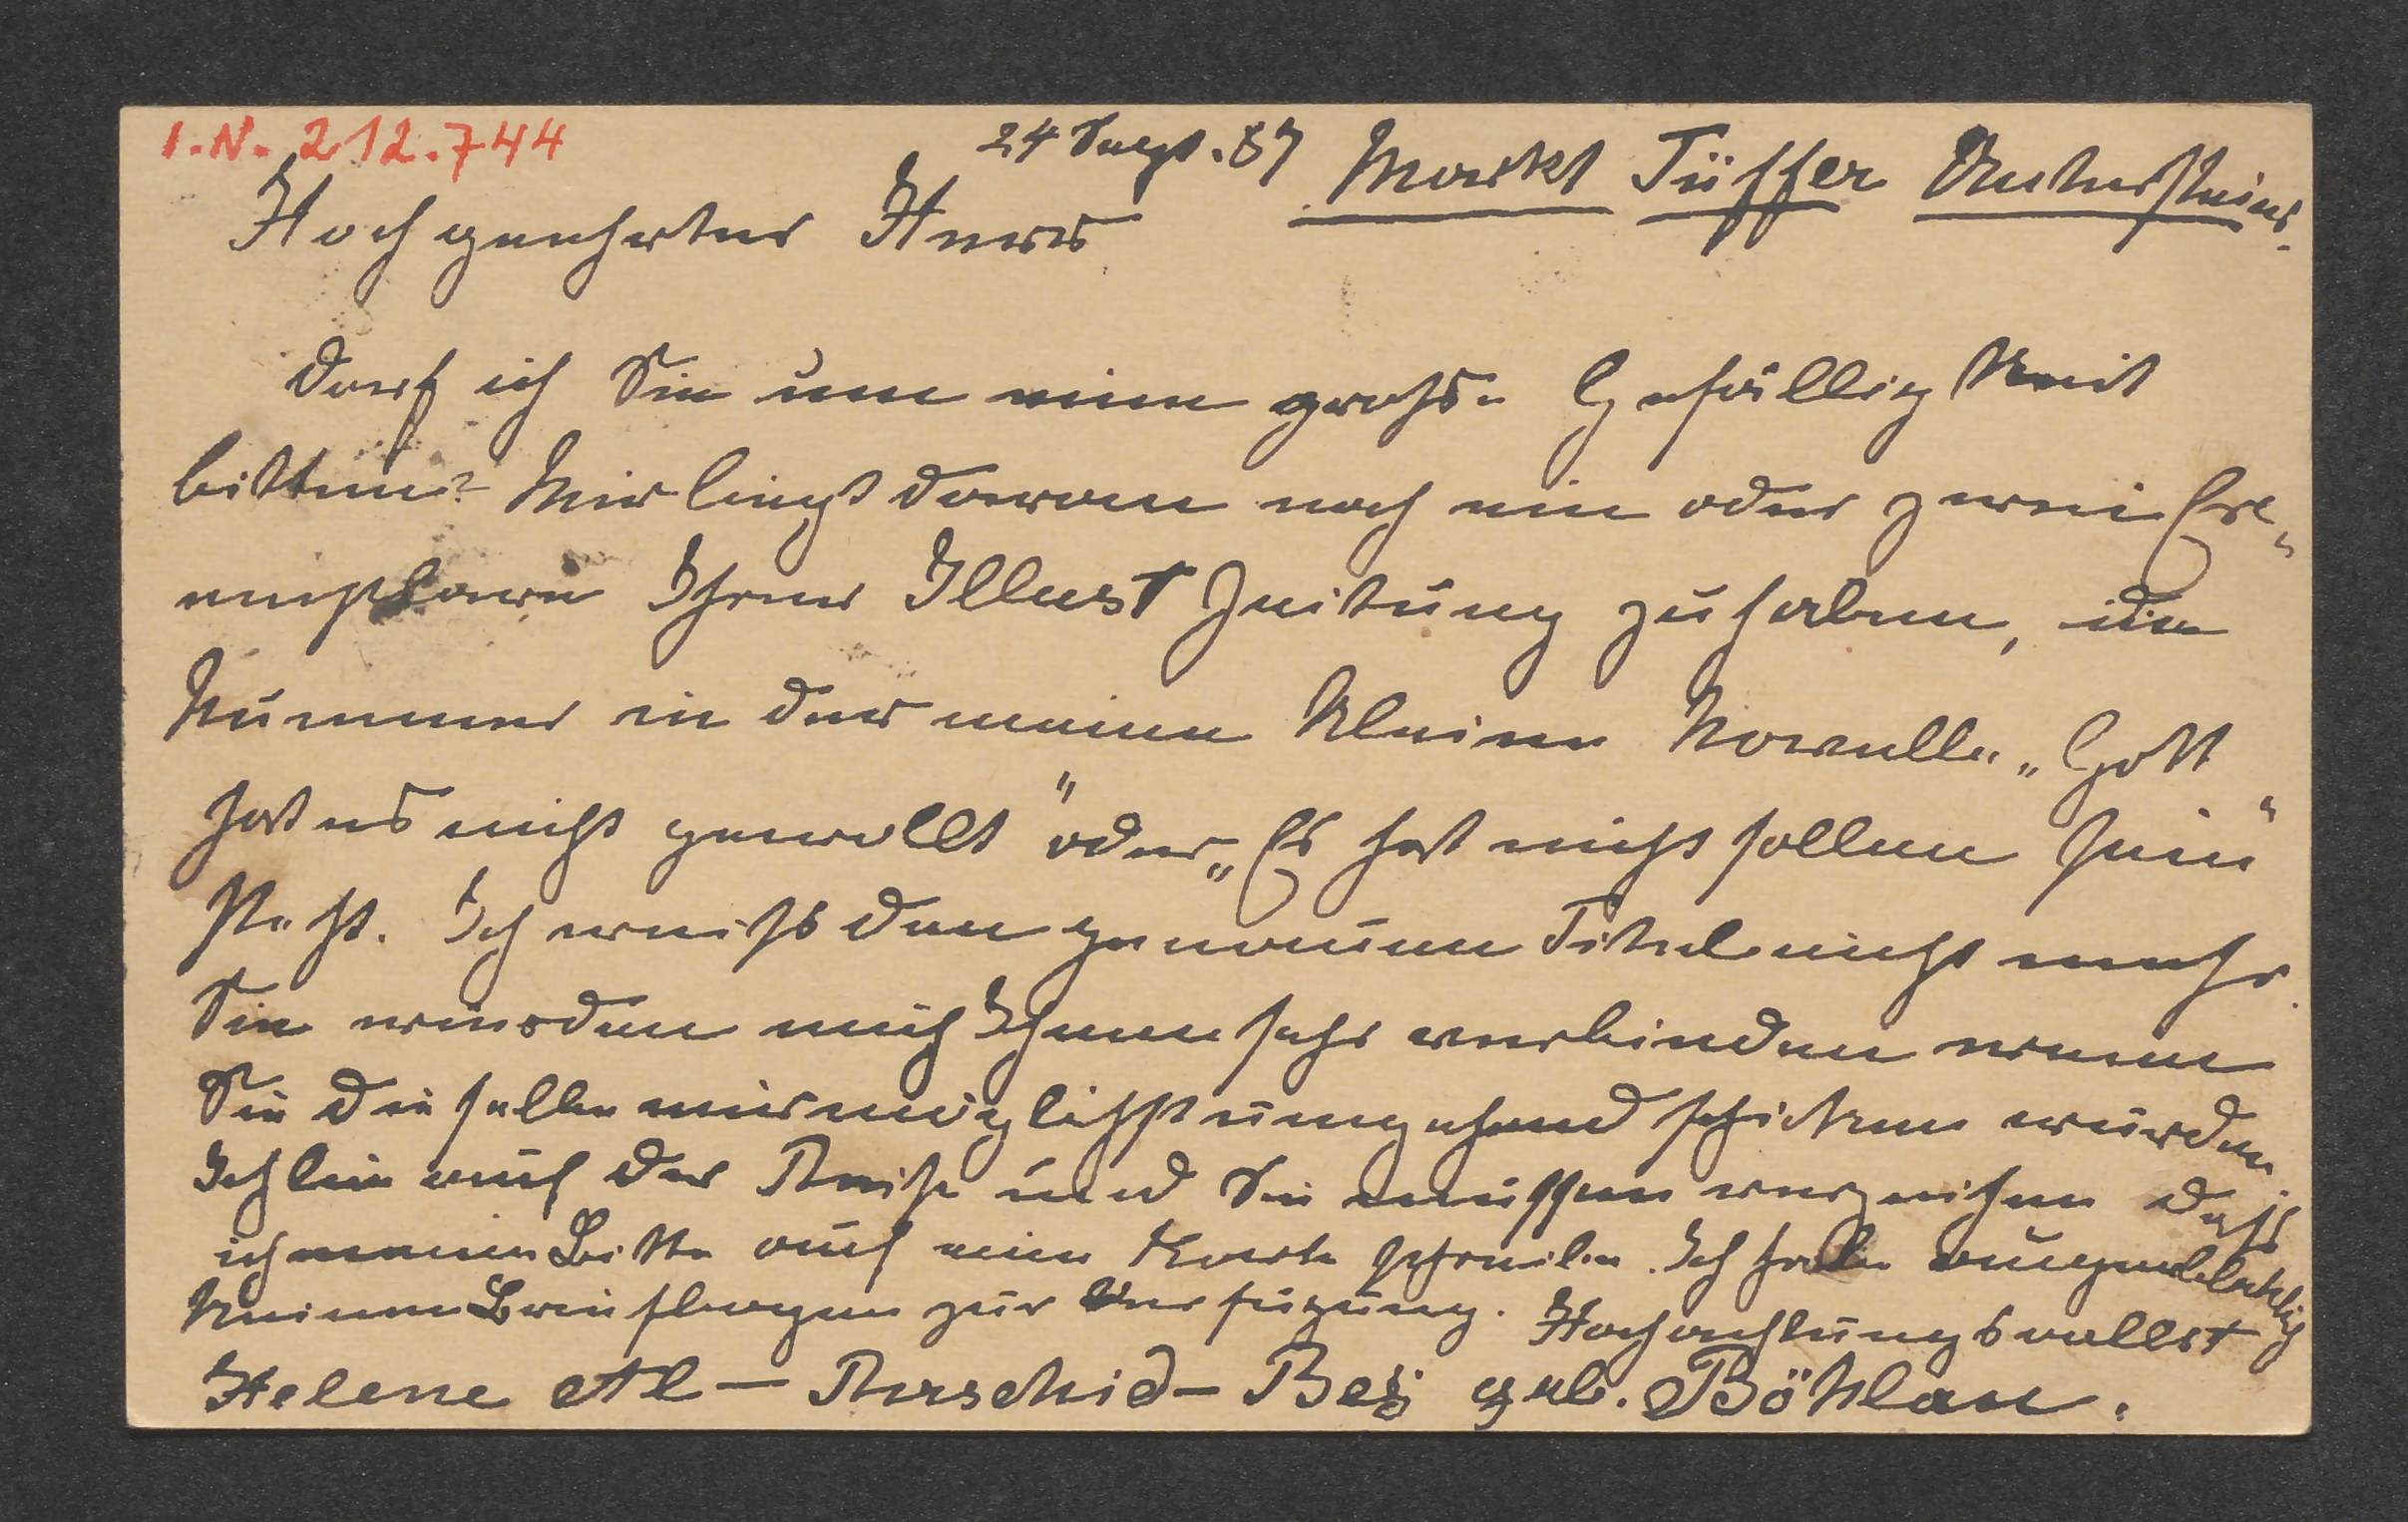 I.N. 212.744
24 Sept. 87 Markt Tüffer Untersteier.
Hochgeehrter Herr
darf ich Sie um eine große Gefälligkeit
bitten? Mir liegt daran noch ein oder zwei Ex„
emplare Ihrer Illust Zeitung zu haben, die
Nummer in der meine kleine Novelle „Gott
hat es nicht gewollt" oder „Es hat nicht sollen sein"
steht. Ich weiß den genauen Titel nicht mehr.
Sie würden mich Ihnen sehr verbinden wenn
Sie dieselbe mir möglichst umgehend schicken würden.
Ich bin auf der Reise und Sie müssen verzeihen daß
ich meine Bitte auf eine Karte schreibe. Ich habe augenblicklich
keinen Briefbogen zur Verfügung. Hochachtungsvollst
Helene Al-Raschid-Bey geb. Böhlau.